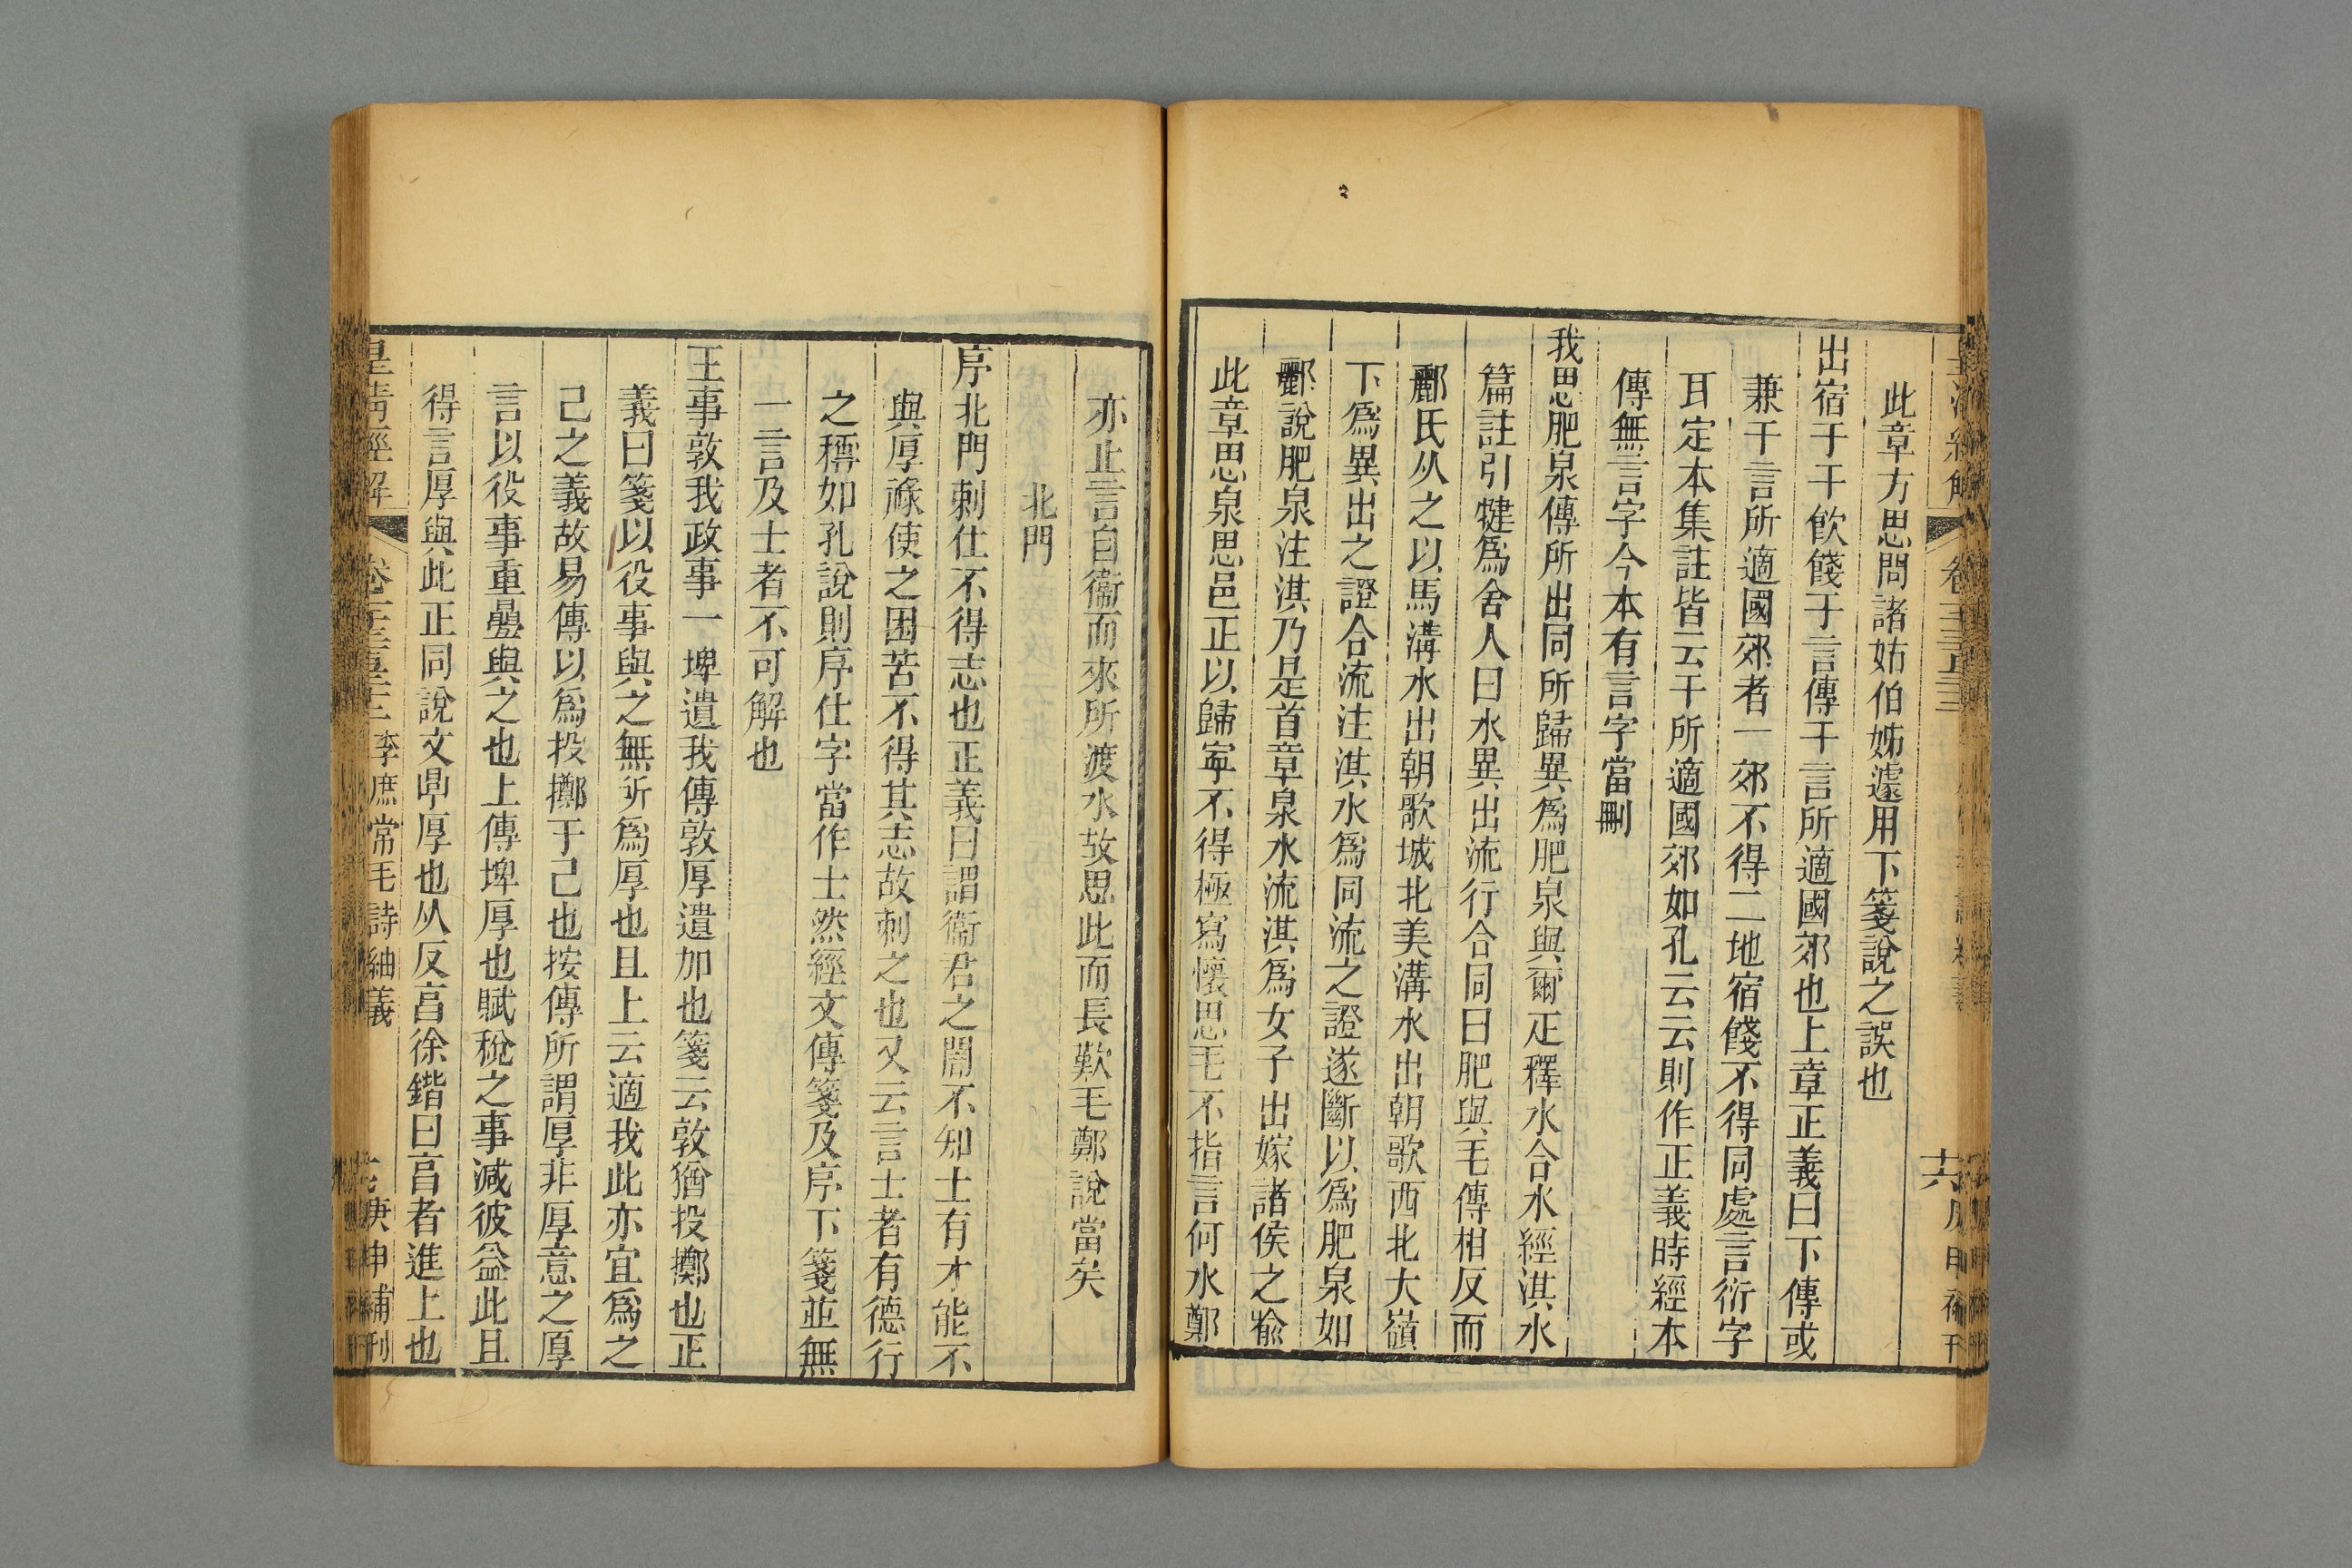 此章方思問諸姑伯姊遽用下箋說之誤也
出宿于干飮餞于言傳干言所適國郊也上章正義曰下傳或
兼干言所適國郊者一郊不得二地宿餞不得同處言衍字
耳定本集註皆云干所適國郊如孔云云則作正義時經本
傳無言字今本有言字當刪
我思肥泉傳所出同所歸異爲肥泉與爾疋釋水合水經淇水
篇註引犍爲舍人曰水異出流行合同曰肥與毛傳相反而
酈氏从之以馬溝水出朝歌城北美溝水出朝歌西北大嶺
下爲異出之證合流注淇水爲同流之證遂斷以爲肥泉如
酈說肥泉注淇乃是首章泉水流淇爲女子出嫁諸侯之喻
此章思泉思邑正以歸寧不得極寫懷思毛不指言何水鄭
亦止言自衞而來所渡水故思此而長歎毛鄭說當矣
北門
序北門刺仕不得志也正義曰謂衞君之闇不知士有才能不
與厚祿使之困苦不得其志故刺之也又云言士者有德行
之稱如孔說則序仕字當作士然經文傳箋及序下箋並無
一言及士者不可解也
王事敦我政事一埤遺我傳敦厚遺加也箋云敦猶投擲也正
義曰箋以役事與之無所爲厚也且上云適我此亦宜爲之
己之義故易傳以爲投擲于己也按傳所謂厚非厚意之厚
言以役事重曡與之也上傳埤厚也賦稅之事減彼益此且
得言厚與此正同說文𣆪厚也从反亯徐鍇曰亯者進上也
皇清經解
李庶常毛詩紬義
庚申補刊